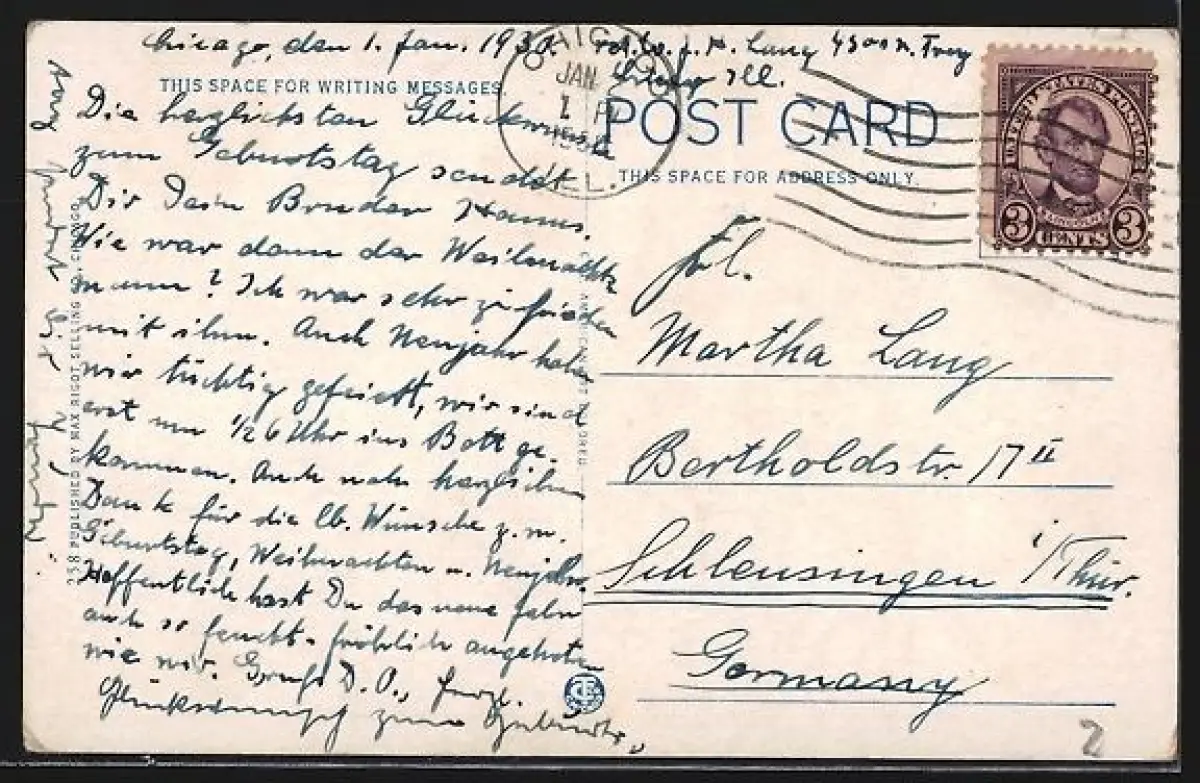 Chicago, den 1. Jan. 193
THIS SPACE FOR WRITING MESSAGES.
Die herzlichsten Glückwünsche
zum Geburtstag sendet
Dir Dein Bruder Hanns.
Wie war denn der Weihnachts
mann? Ich war sehr zufrieden
mit ihm. Auch Neujahr haben
wir tüchtig gefeiert, wir sind
erst um 1/2 6 Uhr ins Bett ge-
kommen. Auch noch herzlichen
Dank für die lb. Wünsche z. m.
Geburtstag, Weihnachten u. Neujahr.
Hoffentlich hast Du das neue Jahr
auch so feucht-fröhlich angetreten
wie wir. Gruß D. O.,
Glückwunsch zum
238 PUBLISHED BY MAX RIGOT SELLING CO., CHICAGO
Lang 4300 N. Troy
Ill.
CHICAGO
JAN
1
ILL.
POST CARD
THIS SPACE FOR ADDRESS ONLY.
UNITED STATES POSTAGE
LINCOLN
3 CENTS 3
Frl.
Martha Lang
Bertholdstr. 17 II
Schleusingen i/Thür.
Germany
2